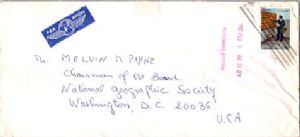 To, MELVIN M. PAYNE
Chairman of the Board
National geographic Society
Washington, D.C. 20036
U.S.A